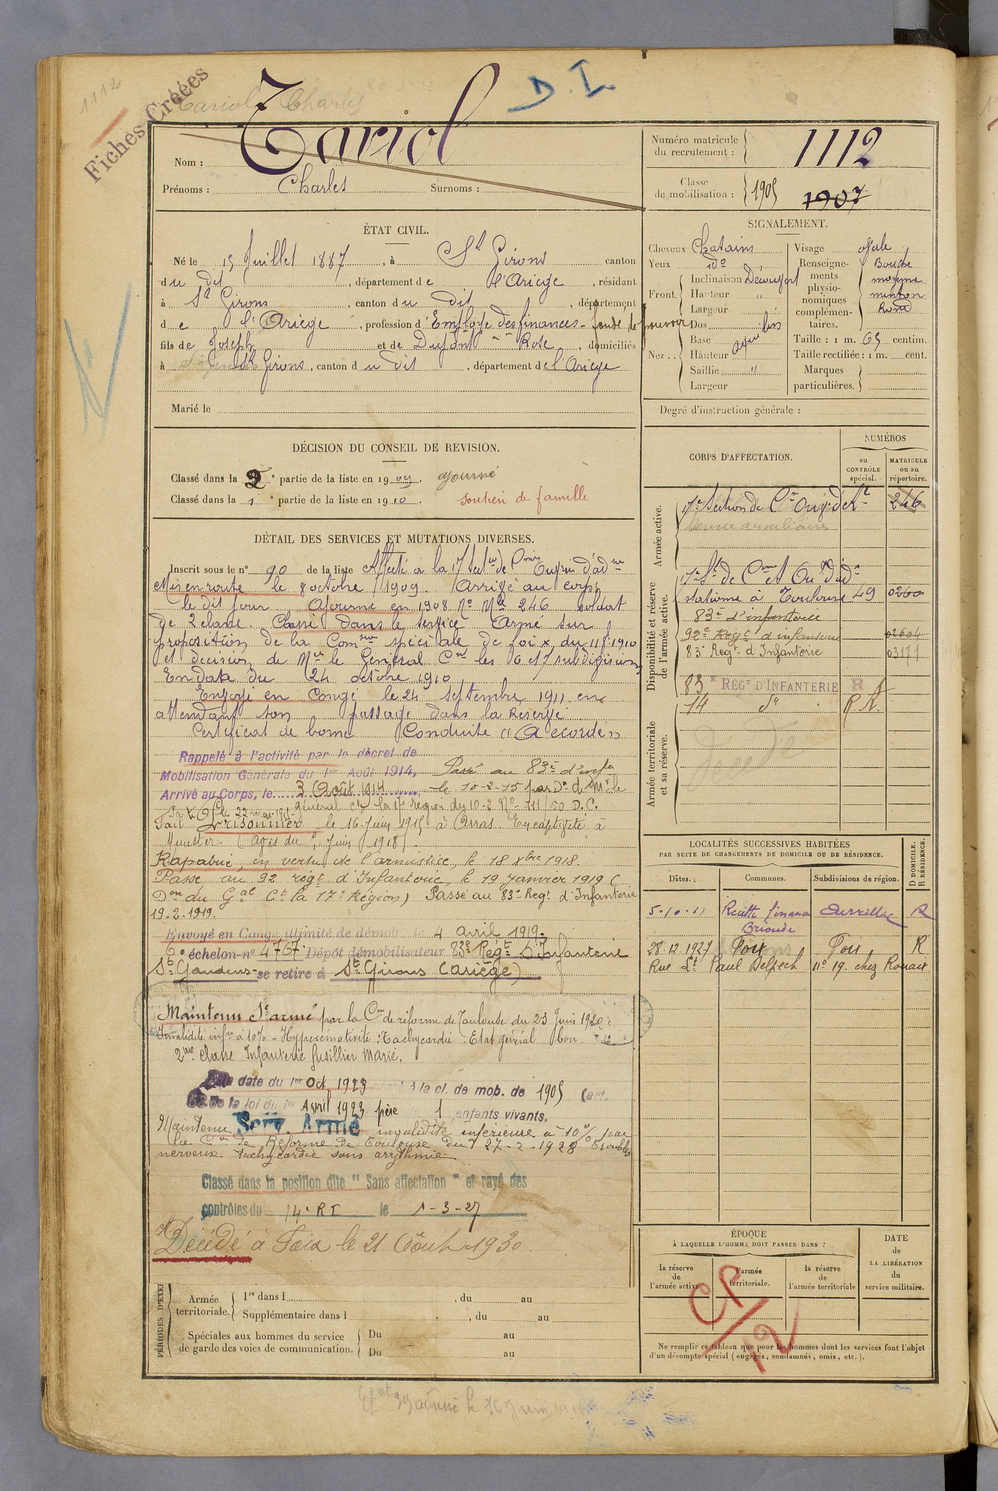 1112
Fiches Créées
Tariol Charles
D.I.
Nom : Tariol
Prénoms : Charles Surnoms :
Numéro matricule du recrutement : 1112
Classe de mobilisation : 1905 1907
ÉTAT CIVIL.
Né le 15 Juillet 1887, à St Girons canton
du dit, département de l'Ariège, résidant
à St Girons, canton du dit, département
de l'Ariège, profession d'Employé des finances - fondé de pouvoir
fils de Joseph et de Dupont Rose, domiciliés
à St Girons, canton du dit, département de l'Ariège
Marié le
SIGNALEMENT.
Cheveux Chatains
Yeux do
Front Inclinaison Découvert
Hauteur "
Largeur "
Nez Dos
Base
Hauteur
Saillie "
Largeur
Visage ovale
Renseignements physionomiques complémentaires. Bouche moyenne menton Rond
Taille : 1 m. 65 centim.
Taille rectifiée : 1 m. cent.
Marques particulières.
Degré d'instruction générale :
DÉCISION DU CONSEIL DE REVISION.
Classé dans la 2e partie de la liste en 1909. ajourné
Classé dans la 1e partie de la liste en 1910. soutien de famille
DÉTAIL DES SERVICES ET MUTATIONS DIVERSES.
Inscrit sous le n° 90 de la liste Affecté à la 17e Section de
Mis en route le 8 octobre 1909. Arrivé au corps
le dit jour. Ajourné en 1908 No Mle 246 soldat
de 2e classe. Classé dans le service Armé sur
proposition de la Comon spéciale de Foix du
et décision de Mr le Général Cmt les 16 et 17 subdivisions
En date du 24 octobre 1910
Envoyé en Congé le 24 septembre 1911 en
attendant son passage dans la Réserve
Certificat de bonne Conduite "Accordé"
Rappelé à l'activité par le décret de
Mobilisation Générale du 1er Août 1914,
Arrivé au Corps, le 3 Août 1914
Passé au 83e d'infie
le 10-2-15 par Don de Mr le
Général Ct la 17e Région des 10-2 No 711/50 D.C.
Fait Prisonnier le 16 Juin 1915 à Arras. En captivité à
Munster (Avis du Juin 1918)
Rapatrié, en vertu de l'armistice, le 18 Xbre 1918.
Passé au 92e régt d'Infanterie, le 19 Janvier 1919 (
Don du Gal Ct la 17e Région) Passé au 83e Regt d'Infanterie
19.2.1919.
Envoyé en Congé illimité de démob le 4 avril 1919.
6e échelon n° 4767 Dépôt démobilisateur 83e Régt D'Infanterie
St Gaudens se retire à St Girons (Ariège)
Maintenu Sce armé par la Con de réforme de Toulouse du 23 Juin 1920 :
Invalidité infre à 10% - Hyperémotivité : Tachycardie - Etat général bon.
2me classe Infanterie fusillier Marié.
date du 1er Oct 1923 à la cl. de mob. de 1905
de la loi du 1er Avril 1923 père de 1 enfants vivants.
Maintenu Serv. Armé invalidité inférieure à 10% par
la Con de Réforme de Toulouse du 27-2-1928 Troubles
nerveux tachycardie sans arythmie
Classé dans la position dite "Sans affectation" et rayé des
contrôles du 14e RI le 1-3-27
Décédé à Foix le 21 Août 1930
CORPS D'AFFECTATION.
NUMÉROS
au CONTRÔLE spécial.
MATRICULE ou au répertoire.
Armée active.
17e Section de 246
service auxiliaire
Disponibilité et réserve de l'armée active.
stationné à Toulouse 49 0260
83e d'infanterie
92e Régt d'infanterie 02604
83e Regt d'Infanterie 03171
83e RÉGt D'INFANTERIE R A
14 do R A.
Armée territoriale et sa réserve.
LOCALITÉS SUCCESSIVES HABITÉES
PAR SUITE DE CHANGEMENTS DE DOMICILE OU DE RÉSIDENCE.
Dates. Communes. Subdivisions de région. D DOMICILE. R RÉSIDENCE.
5-10-11 Recette finance Brioude Aurillac R
28.12.1927 Foix Foix R
Rue Lt Paul Delpech n° 19. chez Rouaix
ÉPOQUE
À LAQUELLE L'HOMME DOIT PASSER DANS :
la réserve de l'armée active
l'armée territoriale.
la réserve de l'armée territoriale
DATE de LA LIBÉRATION du service militaire.
CP/12
Ne remplir ce tableau que pour les hommes dont les services font l'objet
d'un décompte spécial (engagés, condamnés, omis, etc.).
PÉRIODES D'EXER
Armée territoriale. 1re dans l , du au
Supplémentaire dans l , du au
Spéciales aux hommes du service de garde des voies de communication. Du au
Du au